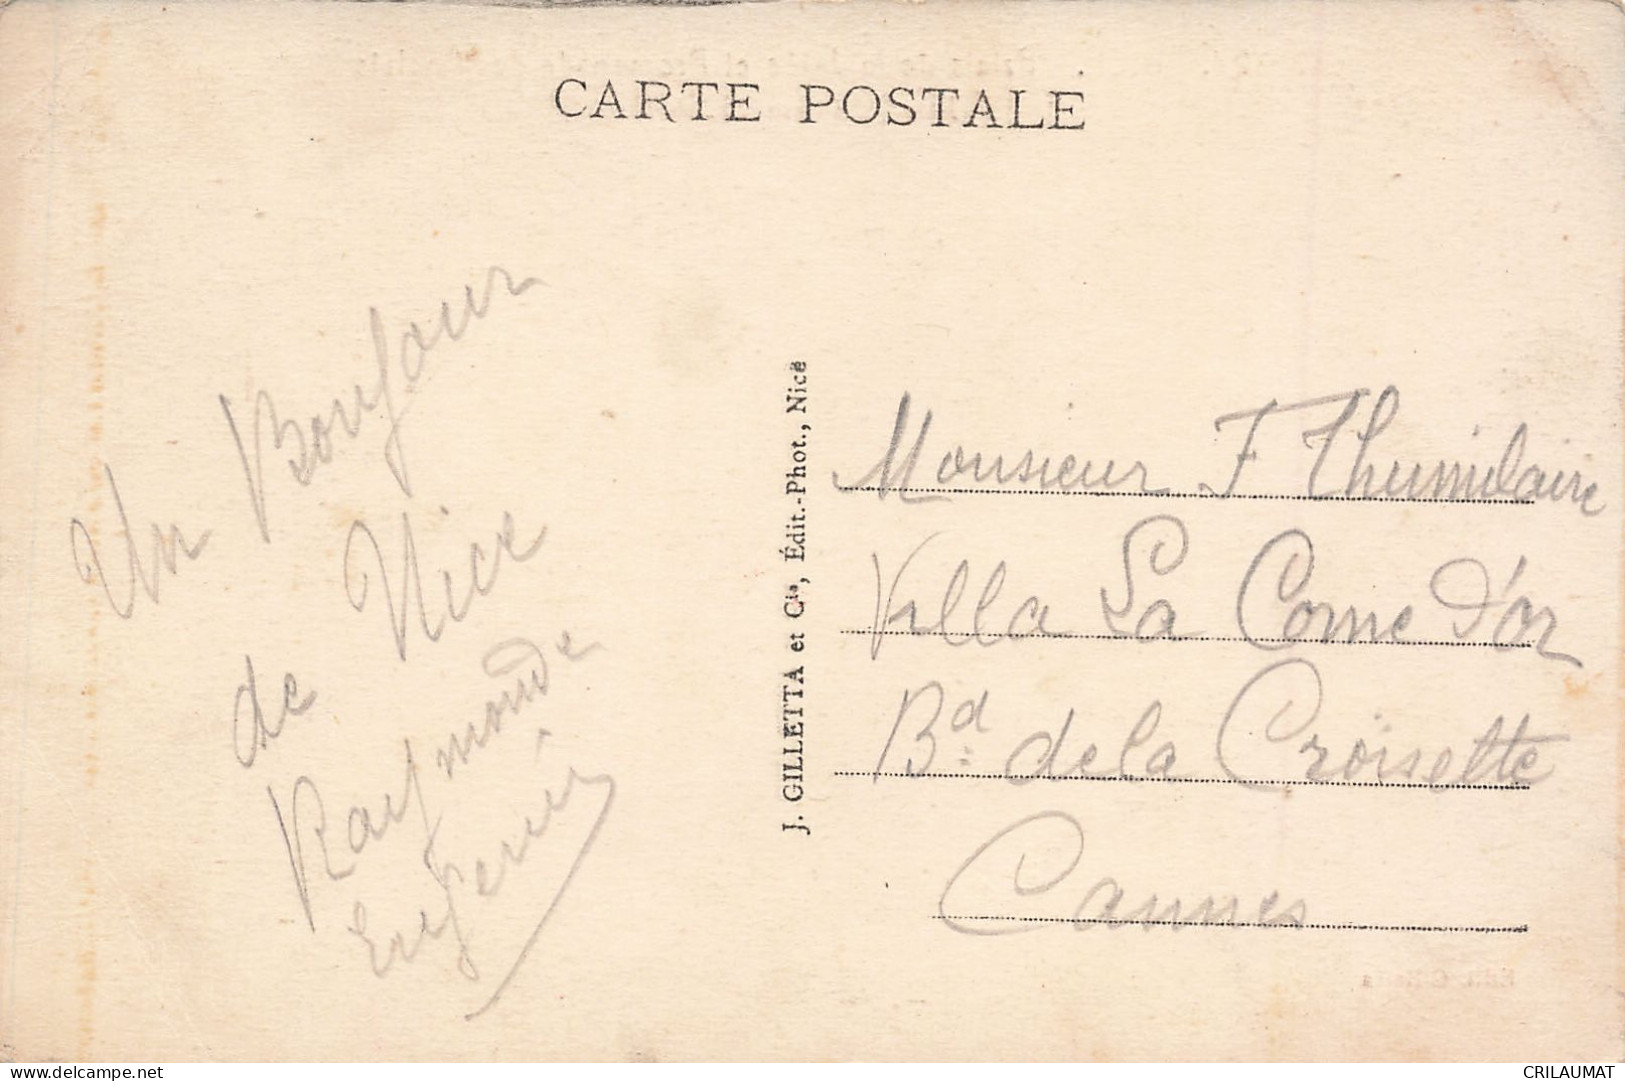 CARTE POSTALE
Un Bonjour
de Nice
Raymonde
Eugenie
J. GILLETTA et Cie, Édit.-Phot., Nice
Monsieur F Thumilaire
Villa La Corne d'or
Bd. de la Croisette
Cannes
delcampe.net
CRILAUMAT